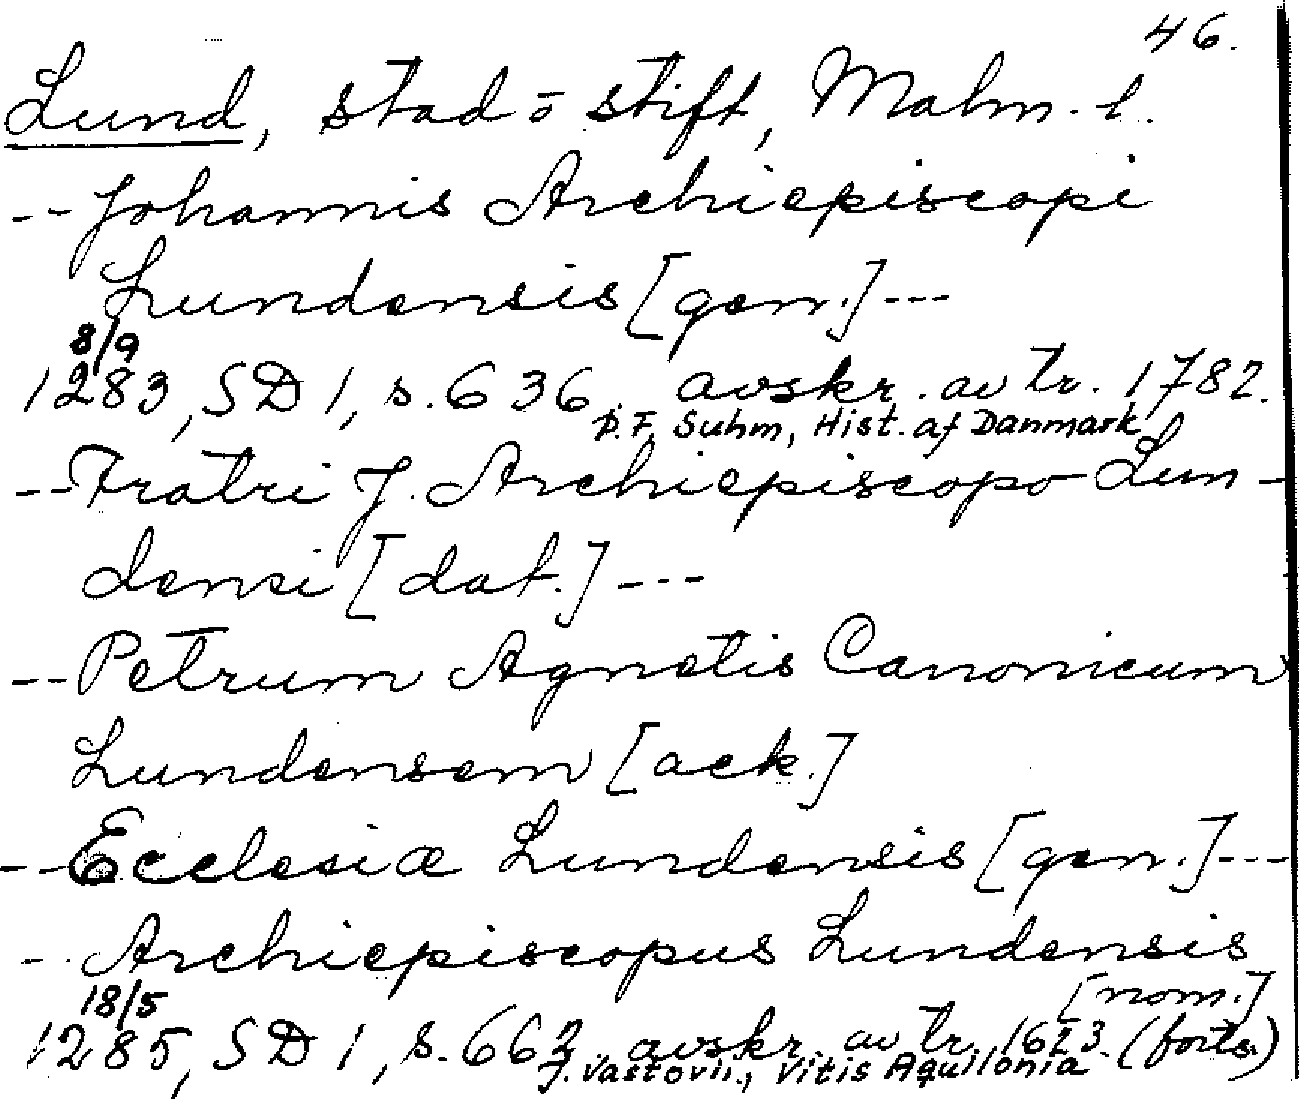 46.
Lund, stad o stift, Malm. l.
-- Johannis Archiepiscopi
Lundensis [gen.] ---
8/9
1283, SD 1, s. 636. avskr. av tr. 1782.
P. F. Suhm, Hist. af Danmark
-- Fratri J. Archiepiscopo Lun-
densi [dat.] ---
-- Petrum Agnetis Canonicum
Lundensem [ack.]
-- Ecclesiæ Lundensis [gen.] ---
- Archiepiscopus Lundensis
[nom.]
18/5
1285, SD 1, s. 662. avskr. av tr. 1623. (forts.)
J. Vastovii, Vitis Aquilonia